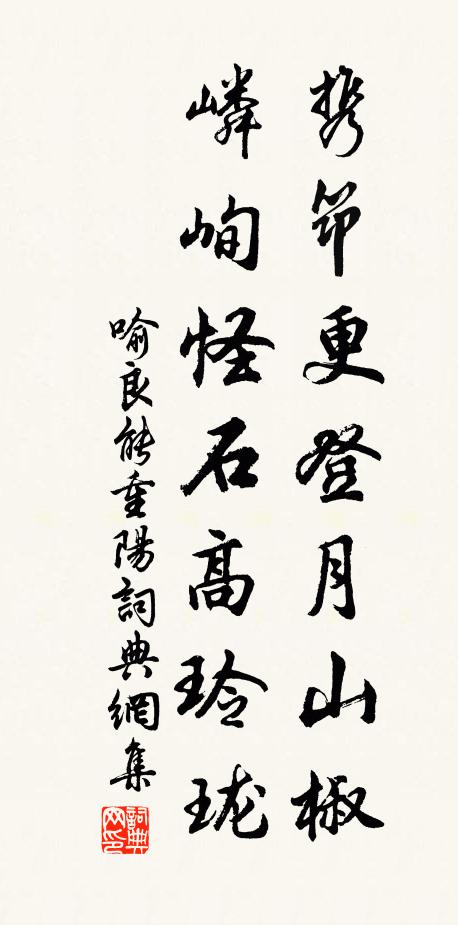 携筇更登月山椒
嶙峋怪石高玲珑
喻良能重陽詞典網集
詞典网印